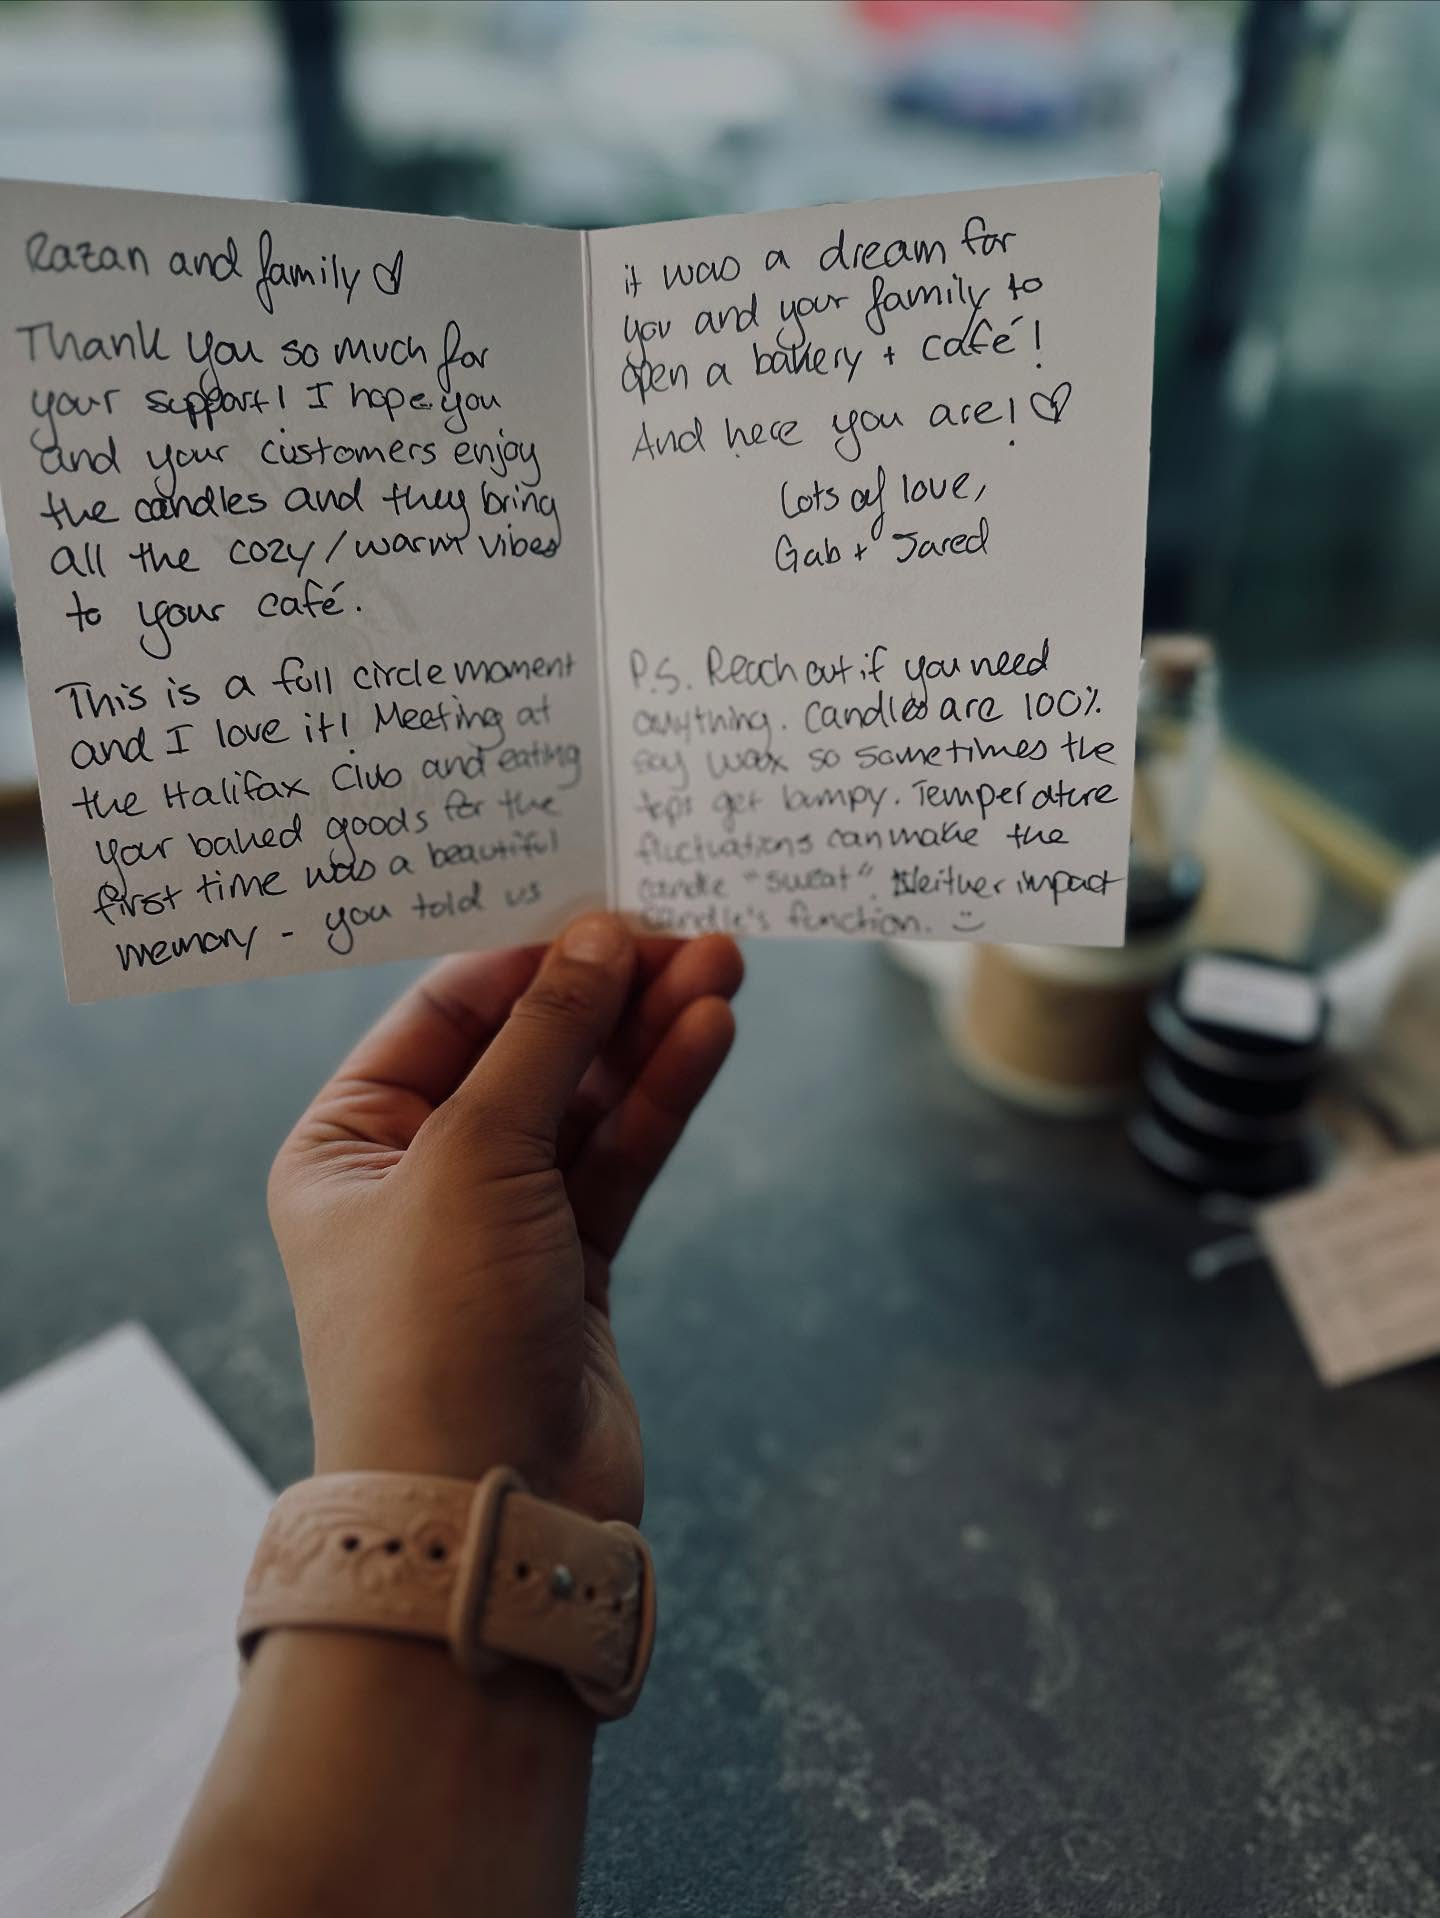 Razan and family ♡
Thank you so much for
your support! I hope you
and your customers enjoy
the candles and they bring
all the cozy/warm vibes
to your café.
This is a full circle moment
and I love it! Meeting at
the Halifax Club and eating
your baked goods for the
first time was a beautiful
memory - you told us
it was a dream for
you and your family to
open a bakery + café!
And here you are! ♡
Lots of love,
Gab + Jared
P.S. Reach out if you need
anything. Candles are 100%
soy wax so sometimes the
tops get bumpy. Temperature
fluctuations can make the
candle "sweat". Neither impact
candle's function. :)